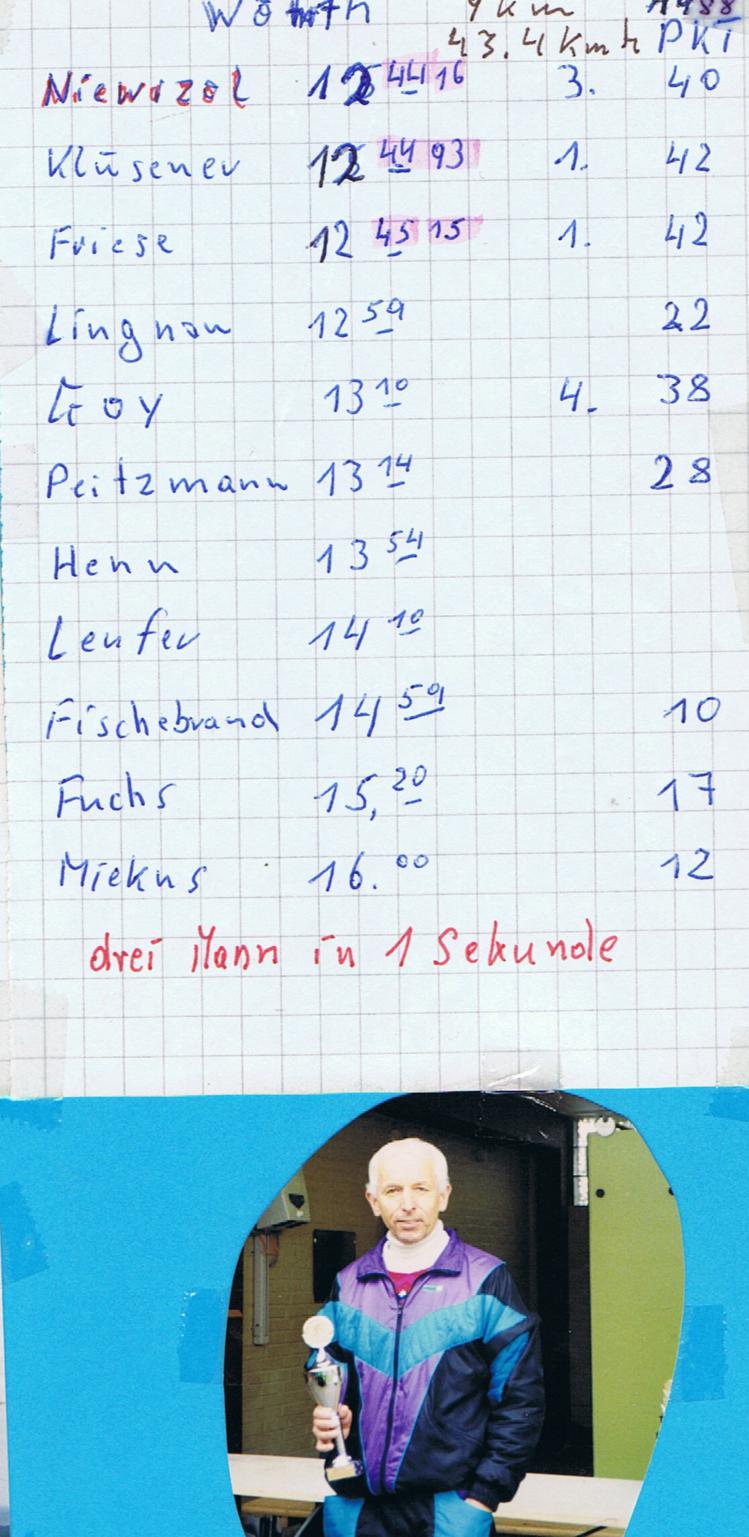 Wörth 9 km
43.4 Kmh PKT
Niewizol 12 44 16 3. 40
Klüsener 12 44 93 1. 42
Friese 12 45 15 1. 42
Lingnau 12 59 22
Goy 13 10 4. 38
Peitzmann 13 14 28
Henn 13 54
Leufer 14 10
Fischebrand 14 59 10
Fuchs 15, 20 17
Miekus 16. 00 12
drei Mann in 1 Sekunde